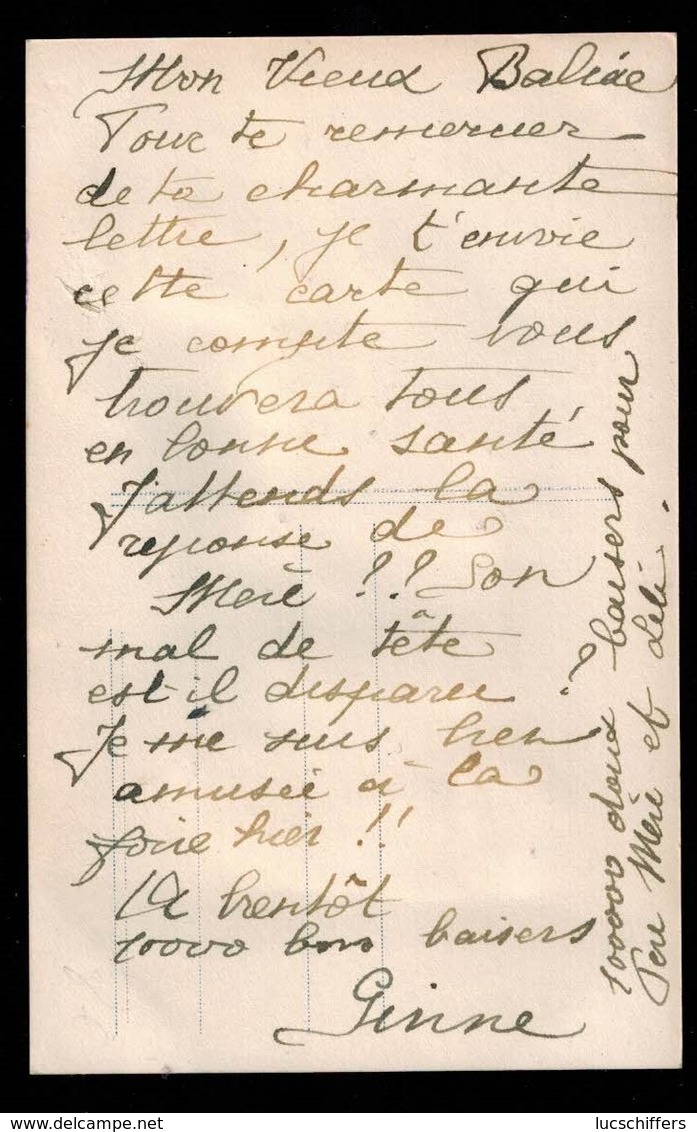 Mon Vieux
Pour te remercier
de ta charmante
lettre, je t'envoie
cette carte qui
je compte vous
trouvera tous
en bonne santé
J'attends la
reponse de
Meré ?? Son
mal de tête
est-il disparu ?
Je me suis bien
amusée à la
foire hier !!
A bientôt
10000 bons baisers
Ginne
100000 doux baisers pour
Pere Meré et Lili.
delcampe.net
lucschiffers